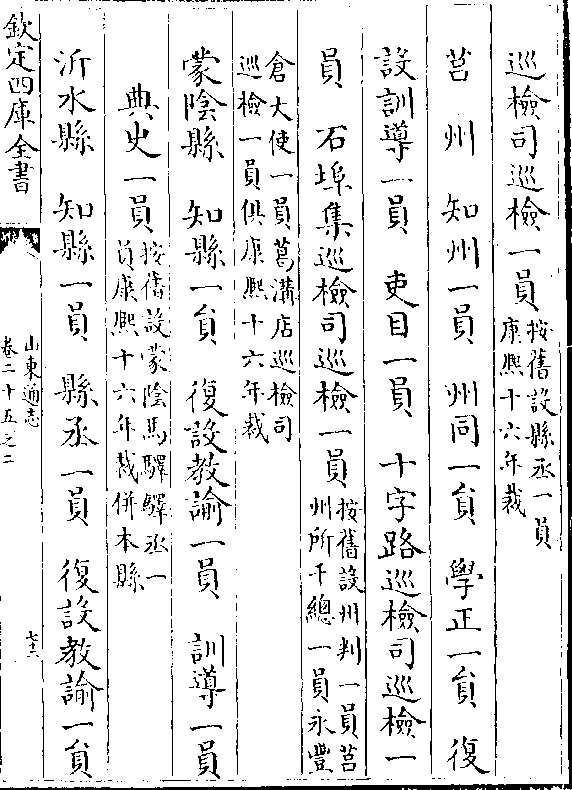 巡檢司巡檢一員按舊設縣丞一員
康熙十六年裁
莒州 知州一員 州同一員 學正一員 復
設訓導一員 吏目一員 十字路巡檢司巡檢一
員 石埠集巡檢司巡檢一員按舊設州判一員莒
州所千總一員永豐
倉大使一員葛溝店巡檢司
巡檢一員俱康熙十六年裁
蒙陰縣 知縣一員 復設教諭一員 訓導一員
典史一員按舊設蒙陰馬驛驛丞一
員康熙十六年裁併本縣
沂水縣 知縣一員 縣丞一員 復設教諭一員
欽定四庫全書
山東通志
卷二十五之二
七十三